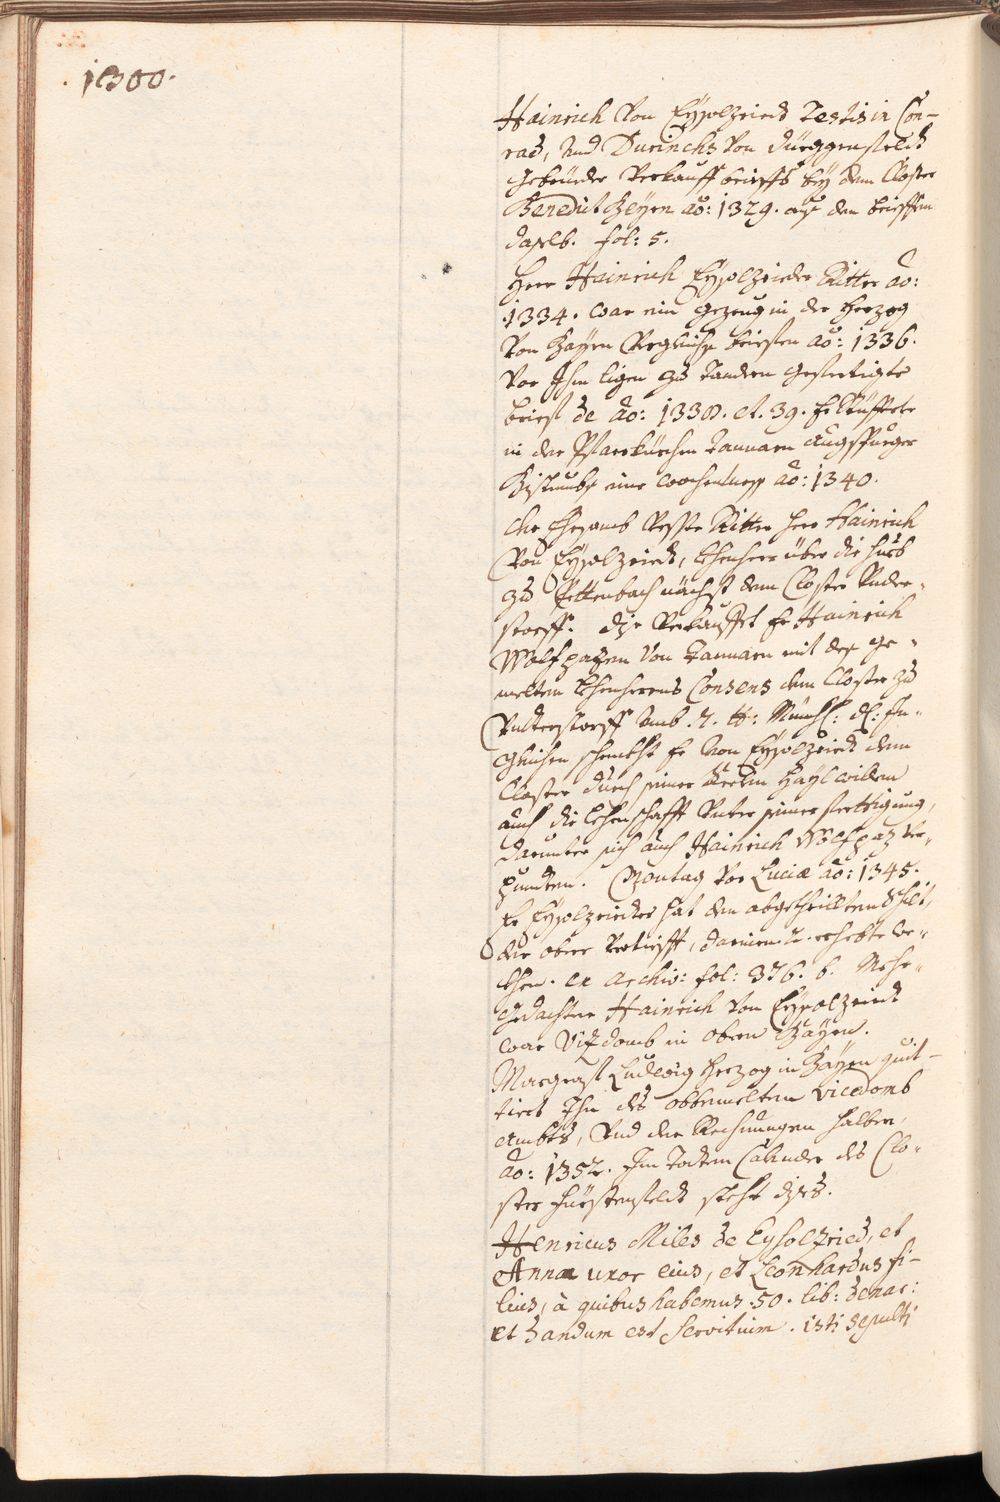 1300.
Hainrich Von Eysolzriedt Testis in Con-
rad, und Durinchs Von Dürggenfeldt
Gebrüeder Verkauff brieffs bey dem Closter
Benedict Beyrn ao: 1329. auß den brieffen
daselb. fol: 5.
Herr Hainrich Eysolzrieder Ritter ao:
1334. war ein gezeug in der Herzog
Von Bayrn Verglichs brieffen ao: 1336.
Vor Ihm ligen zu Tandern gefertigte
brieff de ao: 1338. et. 39. Er stüfftete
in der Pfarrkürchen Tannarn Augspurger
Bistumbs eine wochentmess ao: 1340.
Der Ehrsamb Veste Ritter Herr Hainrich
Von Eysolzriedt, Lehenherr über die Hueb
zu Pettenbach nächst dem Closter Under-
storff. Dise Verkaufft Er Hainrich
Wolfpazen Von Tannarn mit des ge-
melten Lehenherrens Consens dem Closter zu
Understorff umb .7. lb: Münch: dl: In-
gleichen schenckht Er Von Eysolzriedt dem
Closter durch seiner Seelen Hayl willen
auch die Lehenschafft Unter seiner ferttigung,
darunter sich auch Hainrich Wolfpaz Ver-
pundten. Montag Vor Luciæ ao: 1345.
Er Eysolzrieder hat den abgetheillten Schilt,
der ober Vertiefft, darinen 2. erhebte We-
ckhen. ex Archiv: fol: 376. b. Mehr-
gedachter Hainrich Von Eysolzriedt
war Vizdomb in obern Bayrn.
Marggraff Ludwig Herzog in Bayrn quit-
tiert Ihn des obbemelten Vicedomb
Ambts, Und der Rechnungen halber
ao: 1352. Im Todten Calender des Clo-
ster Fürstenfeldt steht diss.
Henricus Miles de Eysolzried, et
Anna uxor eius, et Leonhardus fi-
lius, à quibus habemus .50. lib: denar:
et dandum est servitium. isti sepulti